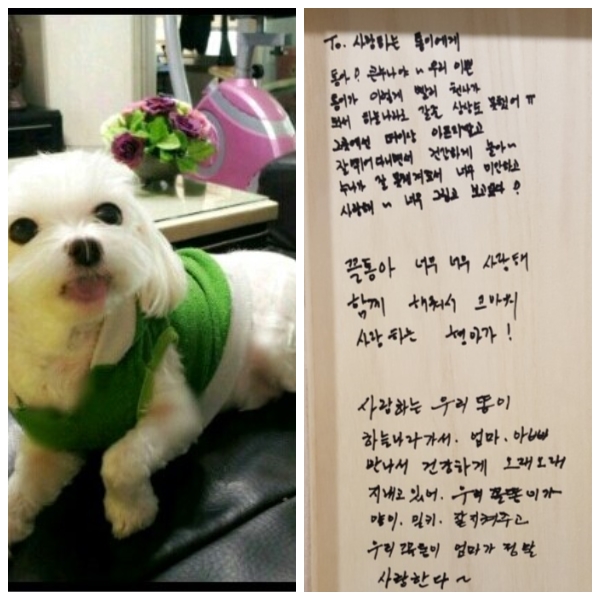 To. 사랑하는 똥이에게
똥아? 큰누나야 ~ 우리 이쁜
똥이가 이렇게 빨리 천사가
되서 하늘나라로 갈줄 상상도 못했어 ㅠ
그곳에선 더이상 아프지말고
잘먹어 다니면서 건강하게 놀아~
누나가 잘 못해줘서 너무 미안하고
사랑해 ~ 너무 그립고 보고싶다?
꼴똥아 너무 너무 사랑해
함께 해줘서 고마워
사랑하는 형아가!
사랑하는 우리 똥이
하늘나라가서. 엄마. 아빠
만나서 건강하게 오래오래
지내고 있어. 우리 꼴똥이가
양이. 밀키. 잘지켜주고
우리 엄마가 정말
사랑한다~